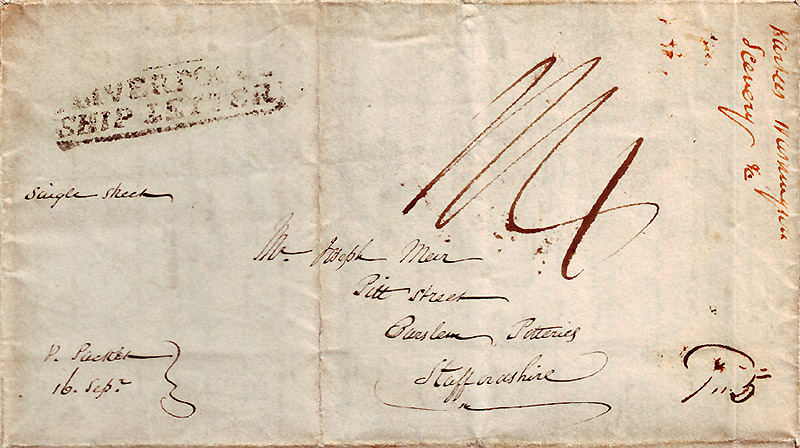 LIVERPOOL
SHIP LETTER
Single sheet
Mr. Joseph Meir
Pitt Street
Burslem Potteries
Staffordshire
P. Packet
16. Sepr.
Washington
Scenery &c